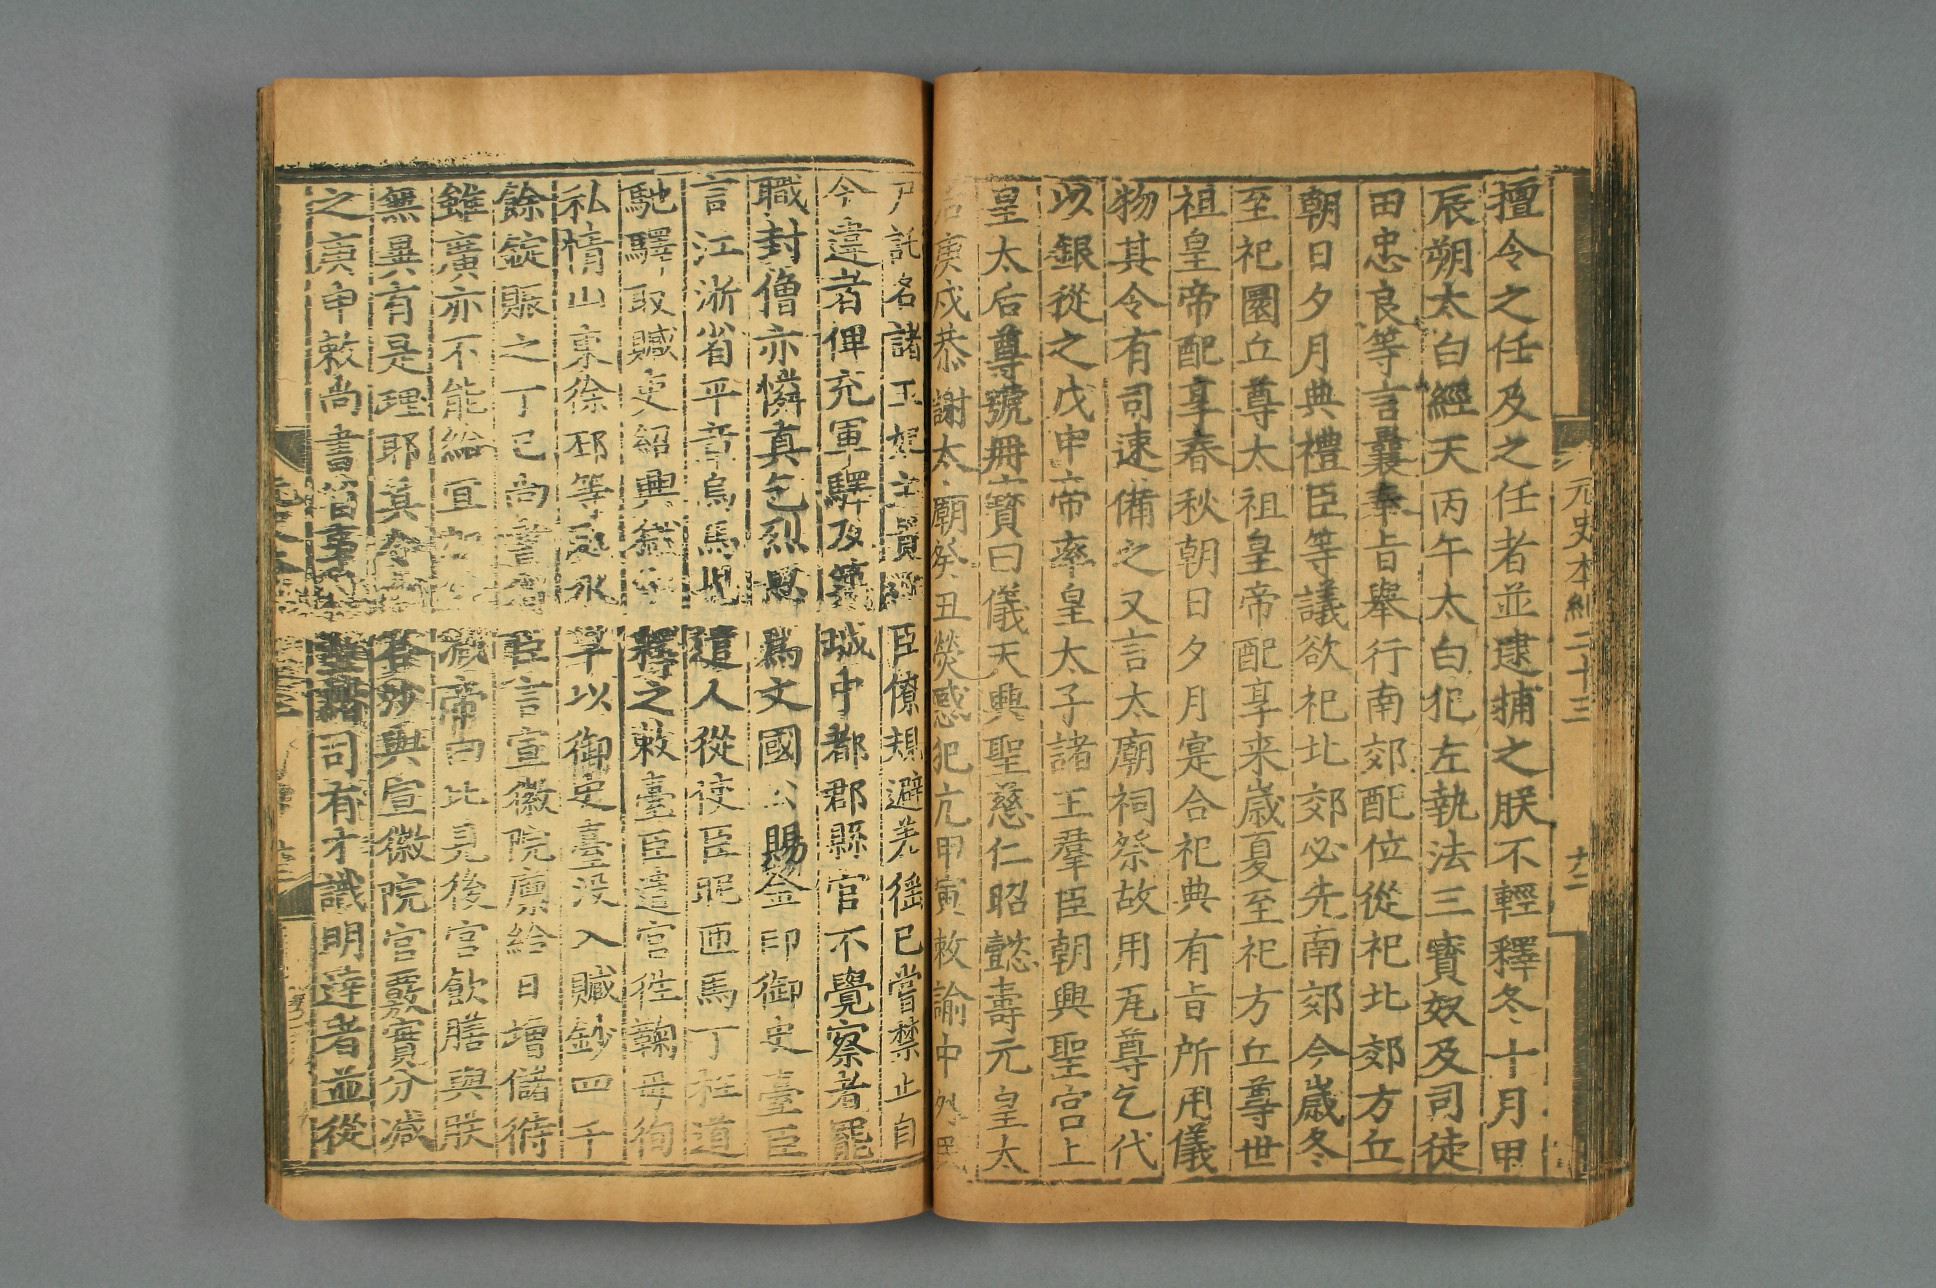 元史本紀二十三
十二
擅令之任及之任者並逮捕之朕不輕釋冬十月甲
辰朔太白經天丙午太白犯左執法三寶奴及司徒
田忠良等言曩奉旨舉行南郊配位從祀北郊方丘
朝日夕月典禮臣等議欲祀北郊必先南郊今歲冬
至祀圜丘尊太祖皇帝配享来歲夏至祀方丘尊世
祖皇帝配享春秋朝日夕月寔合祀典有旨所用儀
物其令有司速備之又言太廟祠祭故用瓦尊乞代
以銀從之戊申帝率皇太子諸王羣臣朝興聖宫上
皇太后尊號冊寶曰儀天興聖慈仁昭懿壽元皇太
后庚戌恭謝太廟癸丑熒惑犯亢甲寅敕諭中外民
戶託名諸王妃主貴近臣僚規避差徭已嘗禁止自
今違者俾充軍驛及築城中都郡縣官不覺察者罷
職封僧亦憐真乞烈思爲文國公賜金印御史臺臣
言江浙省平章烏馬兒遣人從使臣昵匝馬丁枉道
馳驛取贓吏紹興獄中釋之敕臺臣遣官徃鞫毋徇
私情山東徐邳等處水旱以御史臺没入贓鈔四千
餘錠賑之丁巳尚書省臣言宣徽院廩給日增儲偫
雖廣亦不能給宜加分減帝曰比見後宫飲膳與朕
無異有是理耶其令伯荅沙與宣徽院官覈實分減
之庚申敕尚書省事繁重諸司有才識明達者並從